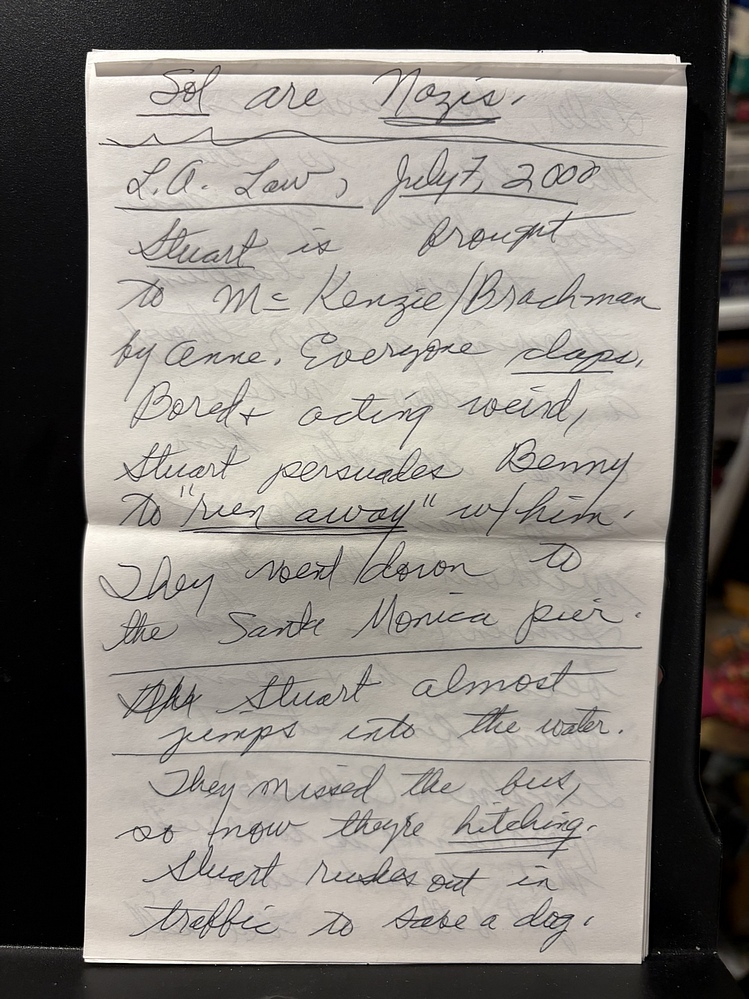 Sol are Nazis.
L.A. Law, July 7, 2000
Stuart is brought
to Mc Kenzie/Brackman
by Anne. Everyone claps.
Bored + acting weird,
Stuart persuades Benny
to "run away" w/ him.
They went down to
the Santa Monica pier.
Stuart almost
jumps into the water.
They missed the bus,
so now they're hitching.
Stuart rushes out in
traffic to save a dog.